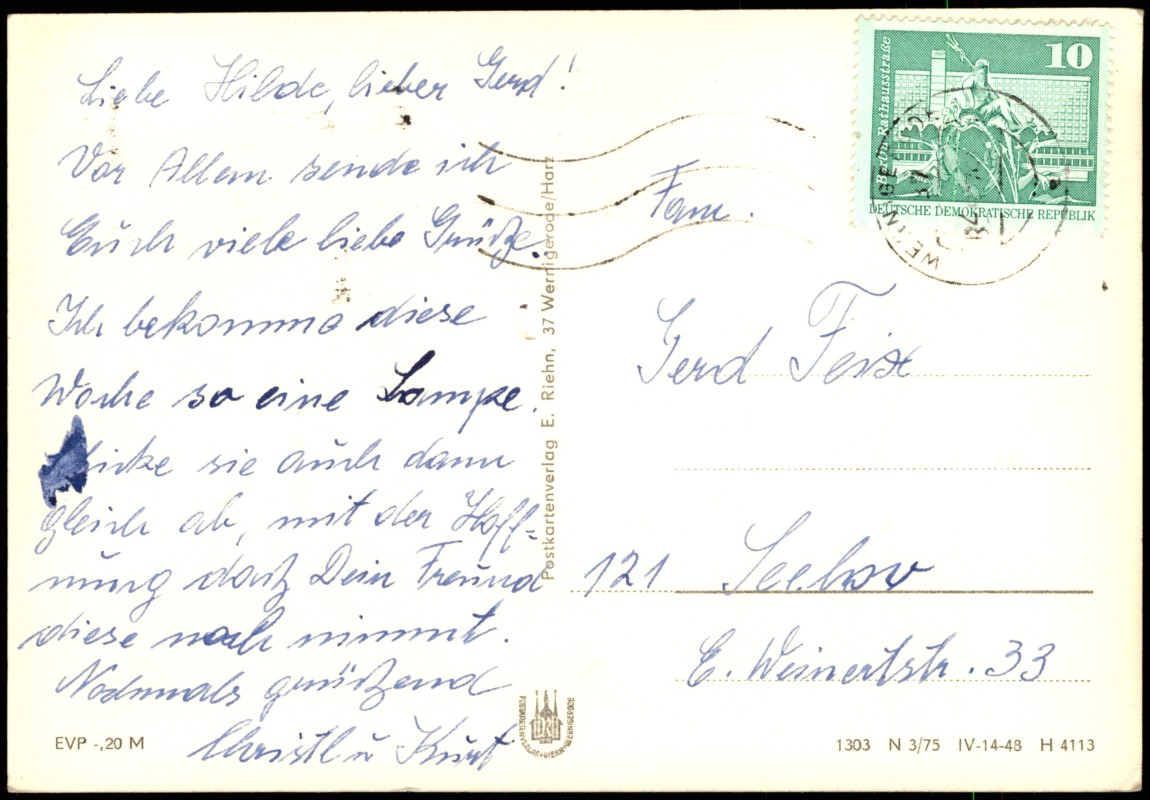 Liebe Hilde, lieber Gerd!
Vor Allem sende ich
Euch viele liebe Grüße.
Ich bekomme diese
Woche so eine Lampe.
sie auch dann
gleich ab, mit der Hoff-
nung daß Dein Freund
diese noch nimmt.
Nochmals grüßend
Christl u Kurt
EVP -,20 M
Postkartenverlag E. Riehn, 37 Wernigerode/Harz
10
Berlin-Rathausstraße
DEUTSCHE DEMOKRATISCHE REPUBLIK
Fam.
Gerd Feix
121 Seelow
E. Weinertstr. 33
1303 N 3/75 IV-14-48 H 4113